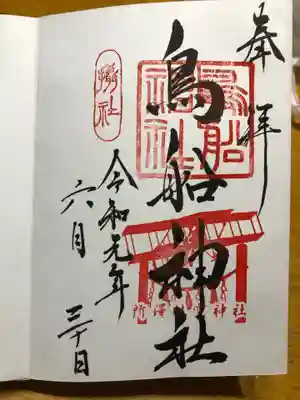 奉拝
鳥船神社
鳥船
神社
攝社
令和元年
六月
三十日